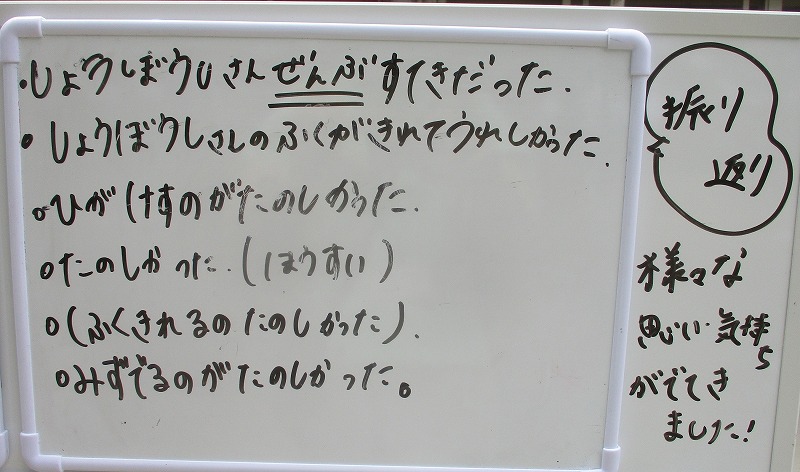 ・しょうぼうしさんぜんぶすてきだった.
○しょうぼうしさんのふくがきれてうれしかった.
○ひがけすのがたのしかった.
○たのしかった.(ほうすい)
○(ふくきれるのたのしかった).
○みずでるのがたのしかった。
振り
返り
様々な
思い・気持
ち
がでてき
ました!